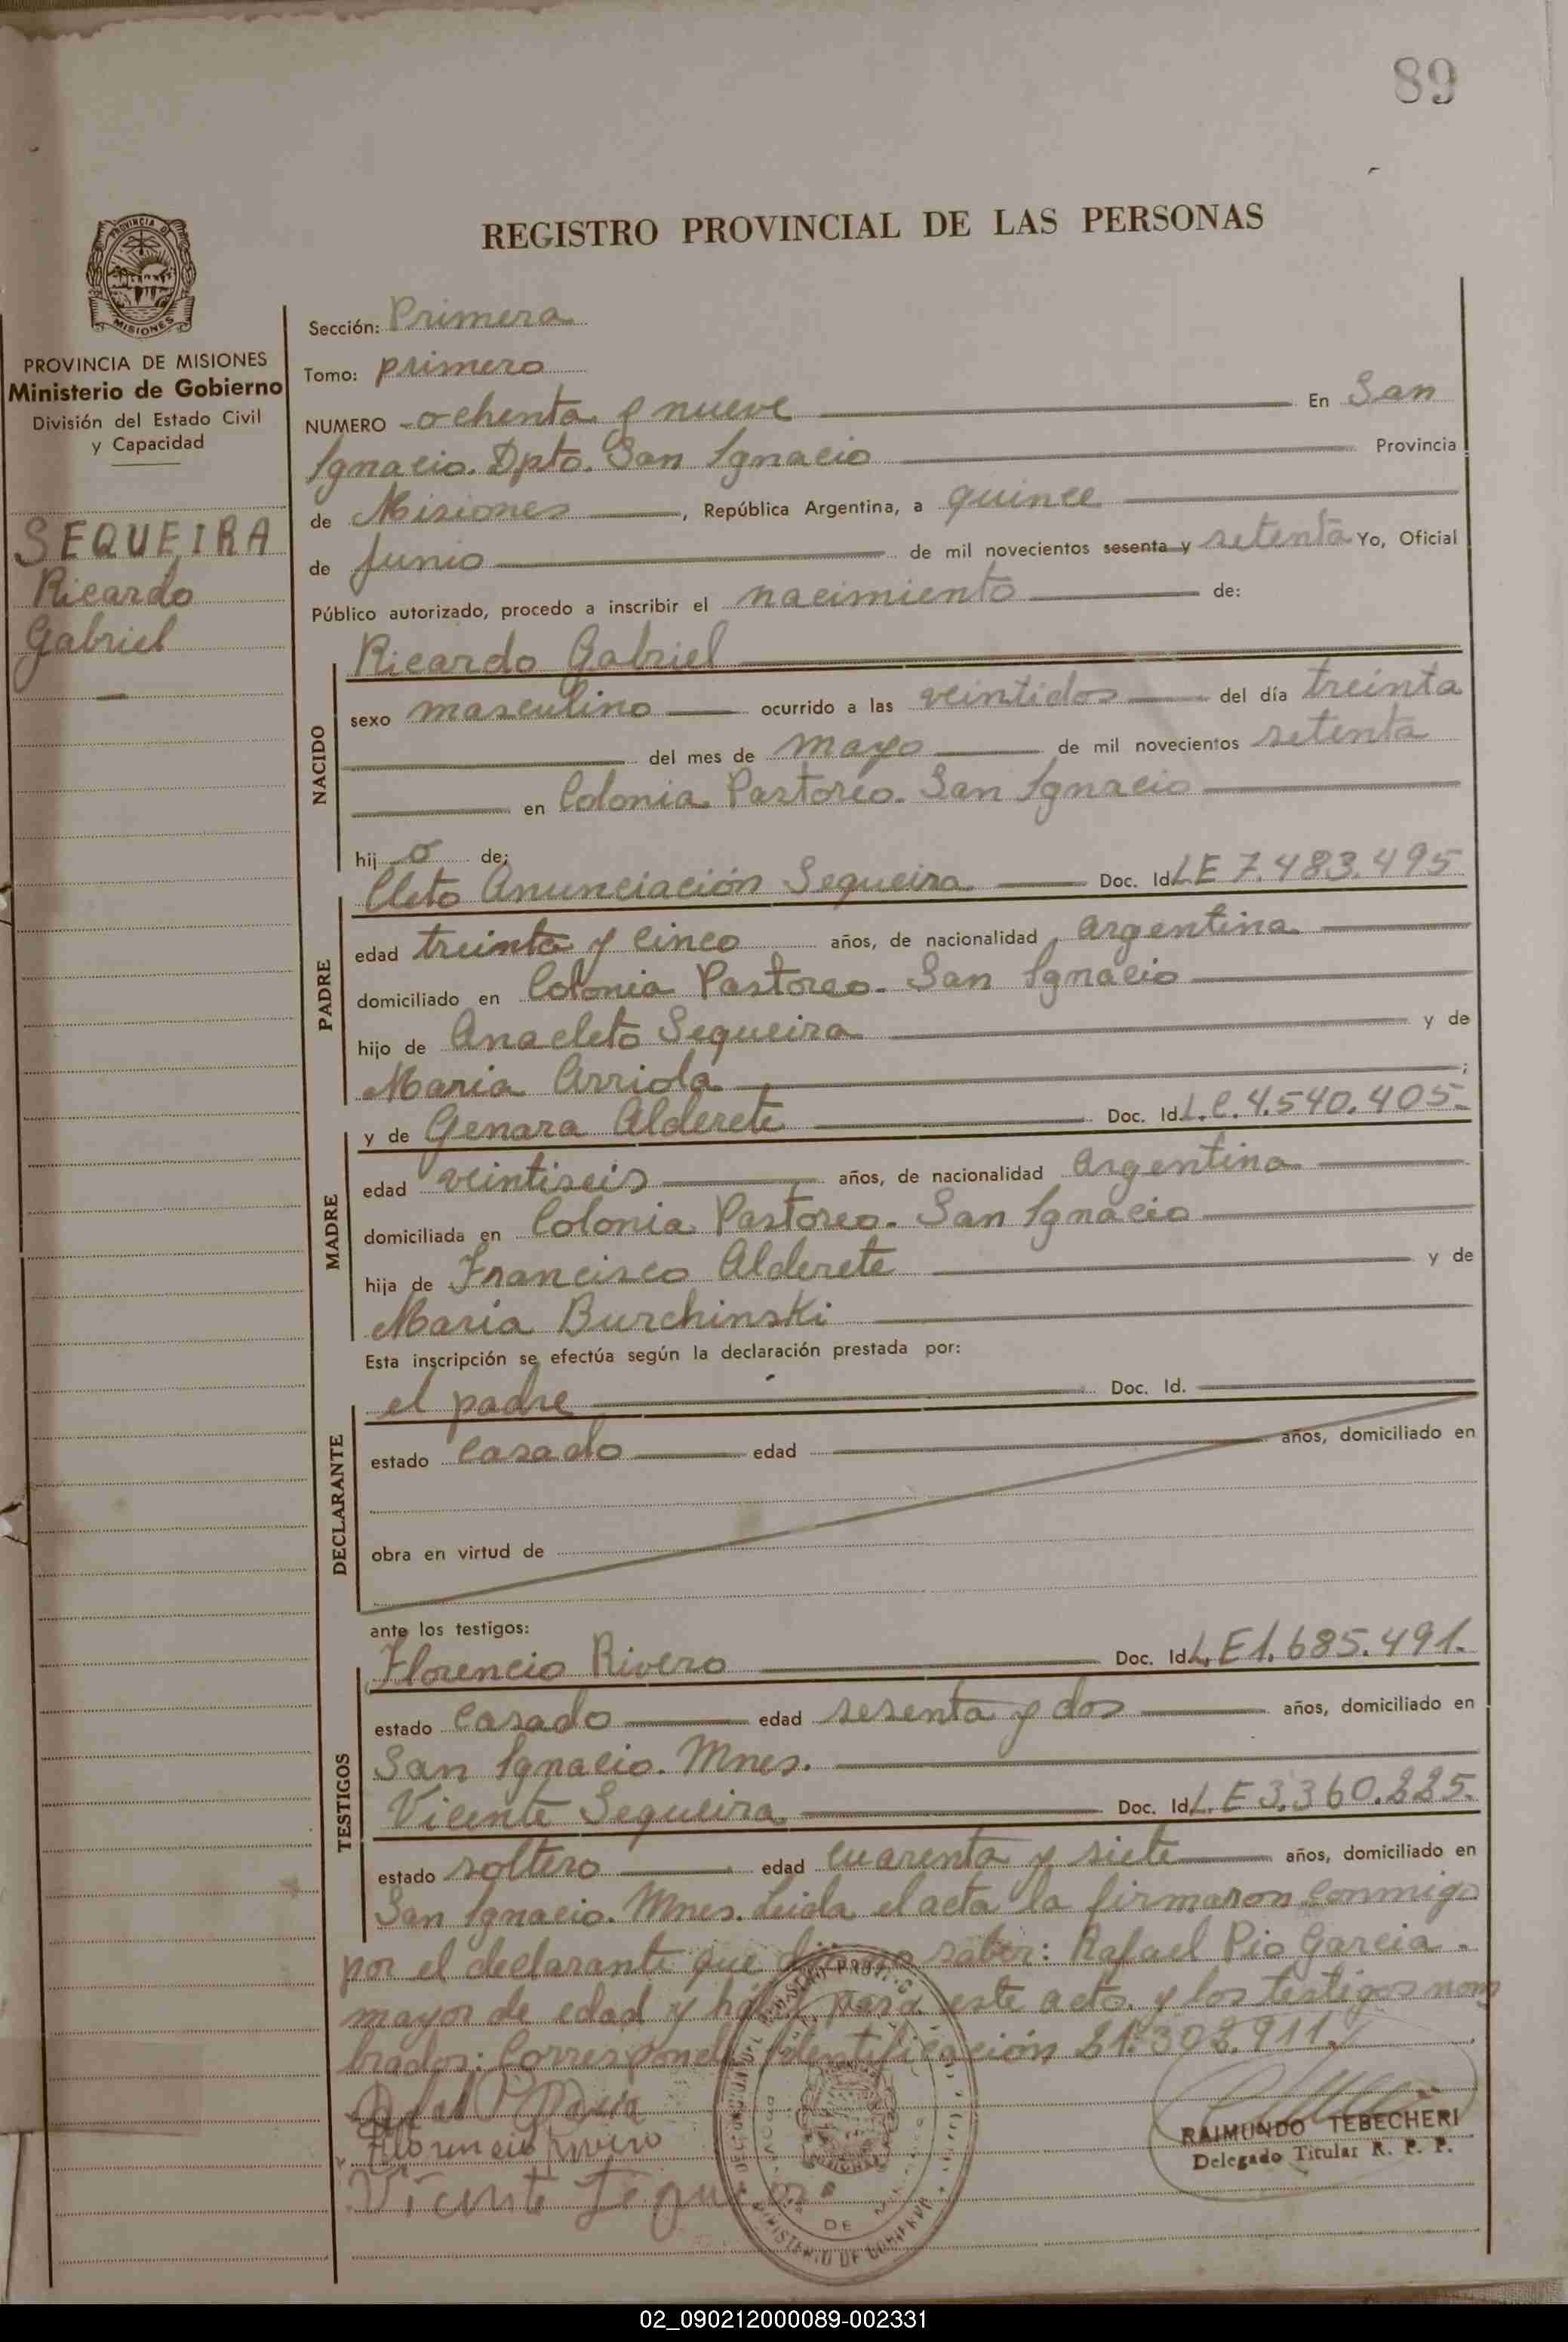 89
REGISTRO PROVINCIAL DE LAS PERSONAS
PROVINCIA DE MISIONES
Ministerio de Gobierno
División del Estado Civil
y Capacidad
SEQUEIRA
Ricardo
Gabriel
Sección: Primera
Tomo: primero
NUMERO ochenta y nueve En San
Ignacio. Dpto. San Ignacio Provincia
de Misiones, República Argentina, a quince
de Junio de mil novecientos sesenta y setenta Yo, Oficial
Público autorizado, procedo a inscribir el nacimiento de:
NACIDO
Ricardo Gabriel
sexo masculino ocurrido a las veintidos del día treinta
del mes de mayo de mil novecientos setenta
en Colonia Pastoreo. San Ignacio
hij o de:
PADRE
Cleto Anunciación Sequeira Doc. Id. LE 7.483.495
edad treinta y cinco años, de nacionalidad Argentina
domiciliado en Colonia Pastoreo. San Ignacio
hijo de Anacleto Sequeira y de
Maria Arriola ;
MADRE
y de Genara Alderete Doc. Id. L.C. 4.540.405.
edad veintiseis años, de nacionalidad Argentina
domiciliada en Colonia Pastoreo. San Ignacio
hija de Francisco Alderete y de
Maria Burchinski
Esta inscripción se efectúa según la declaración prestada por:
DECLARANTE
el padre Doc. Id.
estado casado edad años, domiciliado en
obra en virtud de
ante los testigos:
TESTIGOS
Florencio Rivero Doc. Id. L.E 1.685.491.
estado casado edad sesenta y dos años, domiciliado en
San Ignacio. Mnes.
Vicente Sequeira Doc. Id. L.E 3.360.225.
estado soltero edad cuarenta y siete años, domiciliado en
San Ignacio. Mnes. Leida el acta la firmaron conmigo
por el declarante que saber: Rafael Pio Garcia.
mayor de edad y hábil para este acto. y los testigos nom
brados: Corresponde Identificación 21.302.911.
Florencio Rivero
Vicente Sequeira
RAIMUNDO TEBECHERI
Delegado Titular R. P. P.
MINISTERIO DE GOBIERNO
02_090212000089-002331